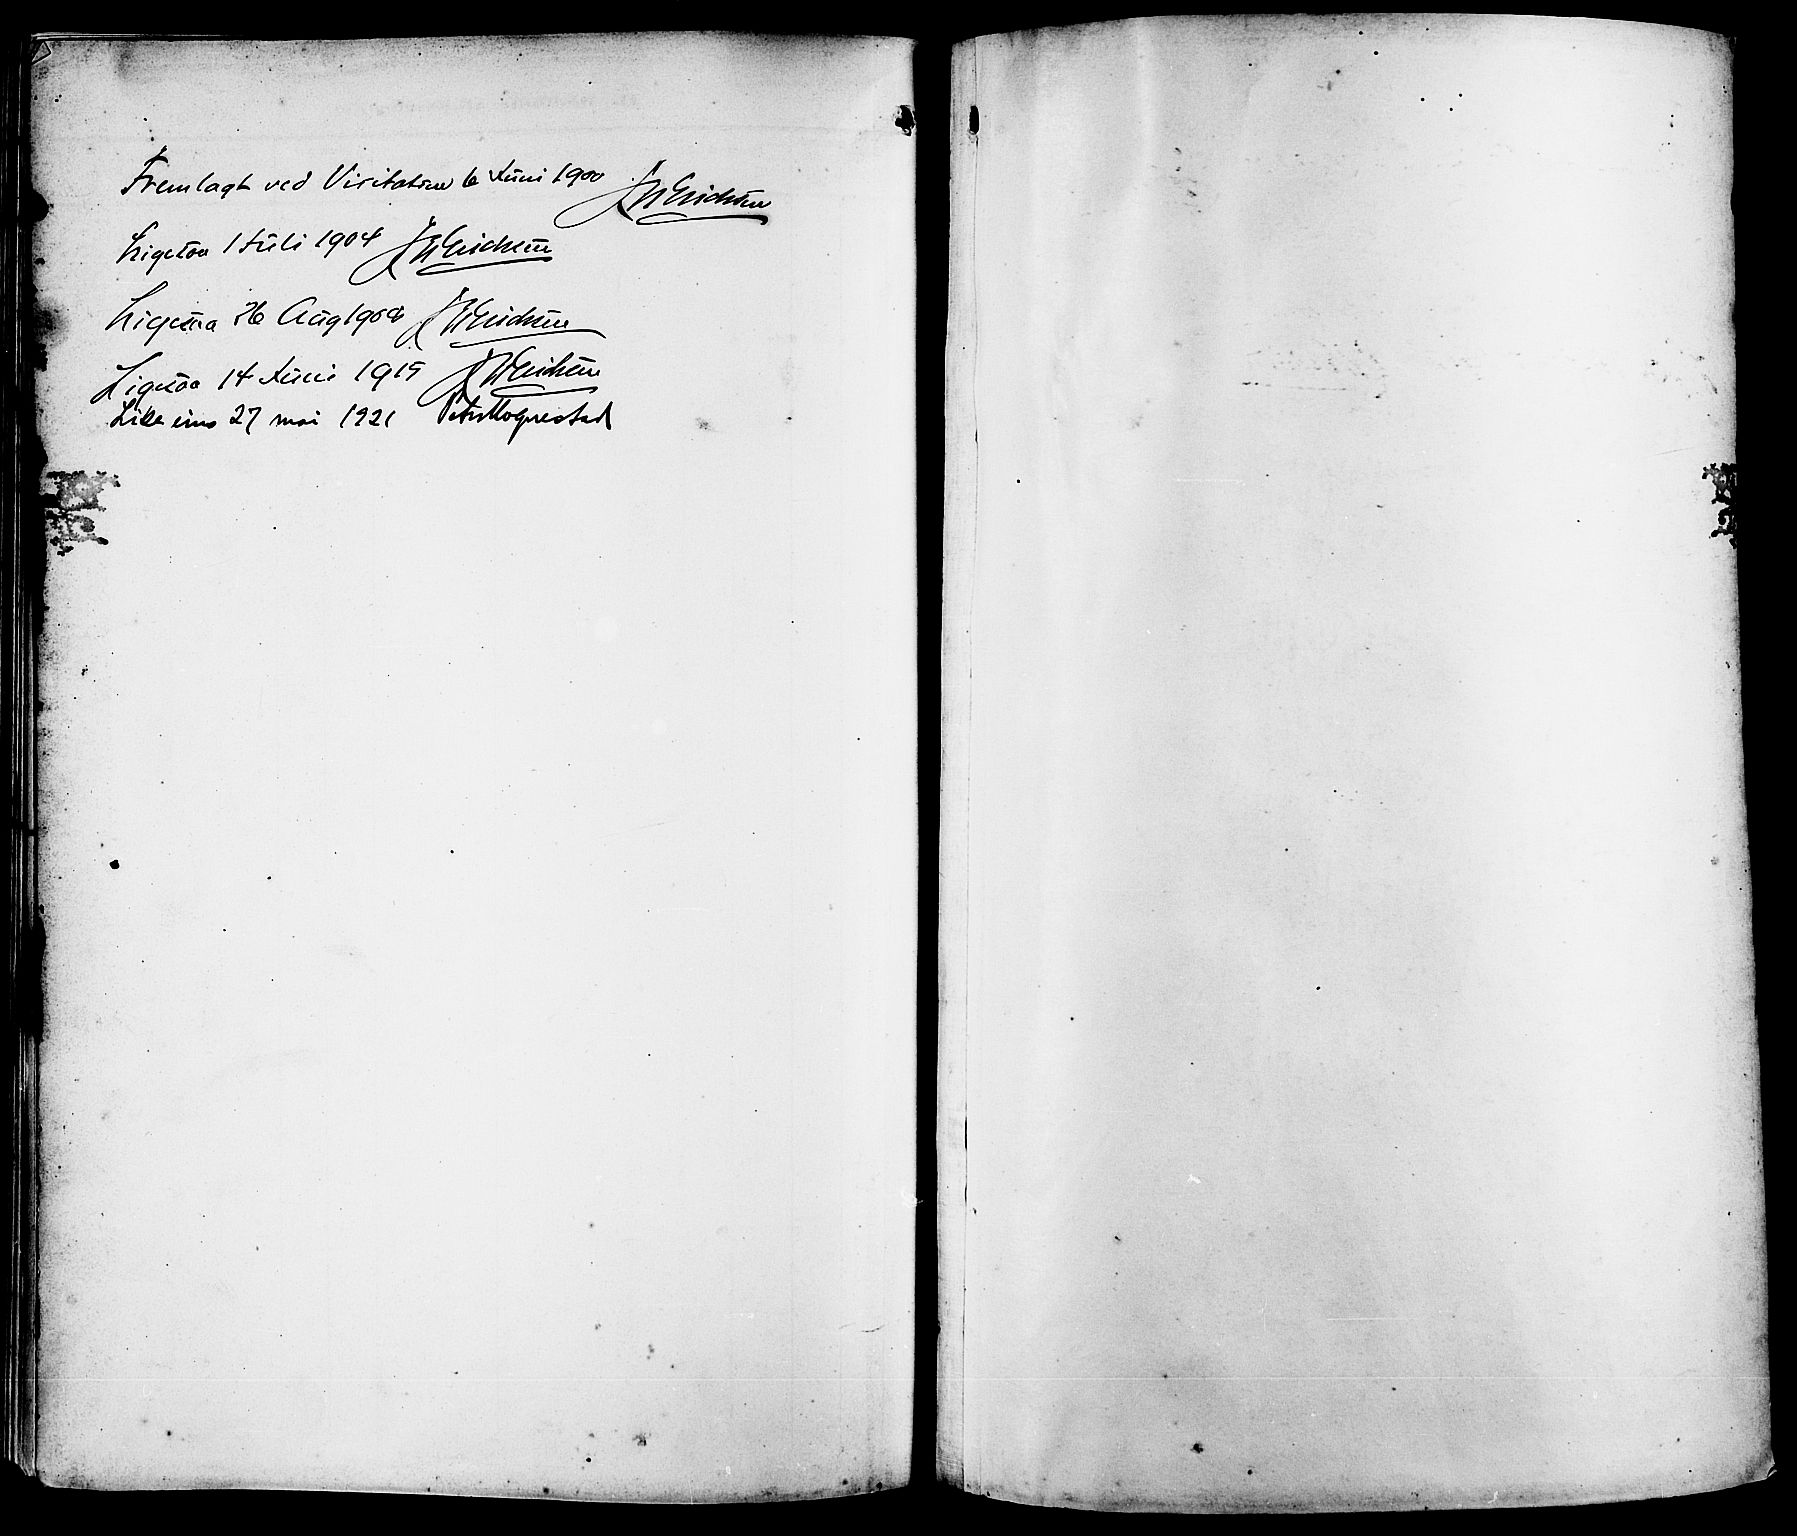 Fremlagt ved Visitation 6 Juni 1900 JWErichsen
Ligesaa 1 Juli 1904 JWErichsen
Ligesaa 26 Aug 1908 JWErichsen
Ligesaa 14 Juni 1915 JWErichsen
Likeeins 27 mai 1921 Peter Hognestad